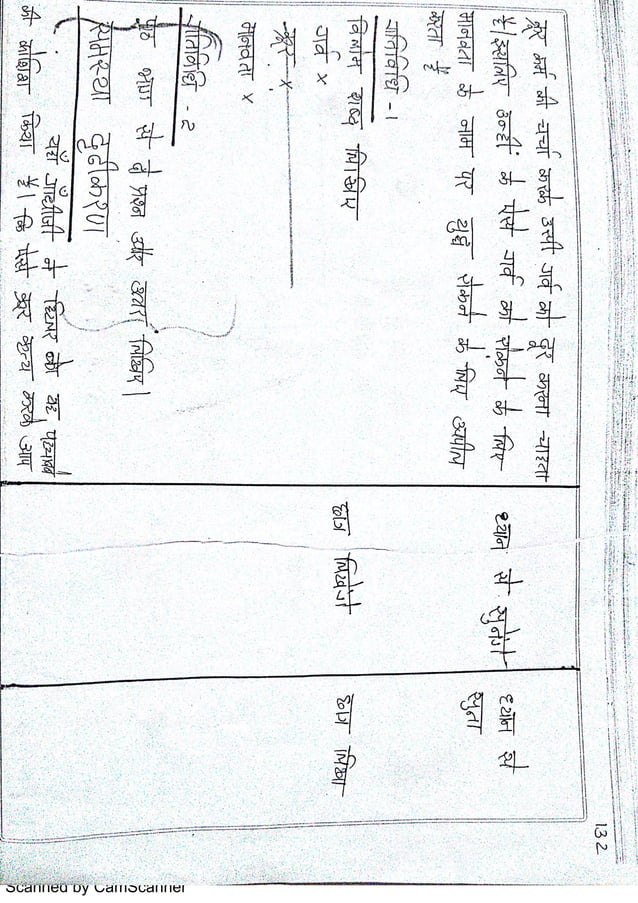 132
क्रूर कर्म की चर्चा करके उसी गर्व को दूर करना चाहता
है। इसलिए उन्हीं के ऐसे गर्व को रोकने के लिए
मानवता के नाम पर युद्ध रोकने के लिए उपयोग
करता है
ध्यान से सुनेंगे
ध्यान से
सुना
गतिविधि -1
विलोम शब्द लिखिए
छात्र लिखेंगे
छात्र लिखा
गर्व x
क्रूर x
मानवता x
गतिविधि - 2
पाठ भाग से दो प्रश्न और उत्तर लिखिए।
समस्या दृढ़ीकरण
यहाँ गाँधीजी ने हिटलर को यह
है। कि ऐसे क्रूर कृत्य करके आप
Scanned by CamScanner